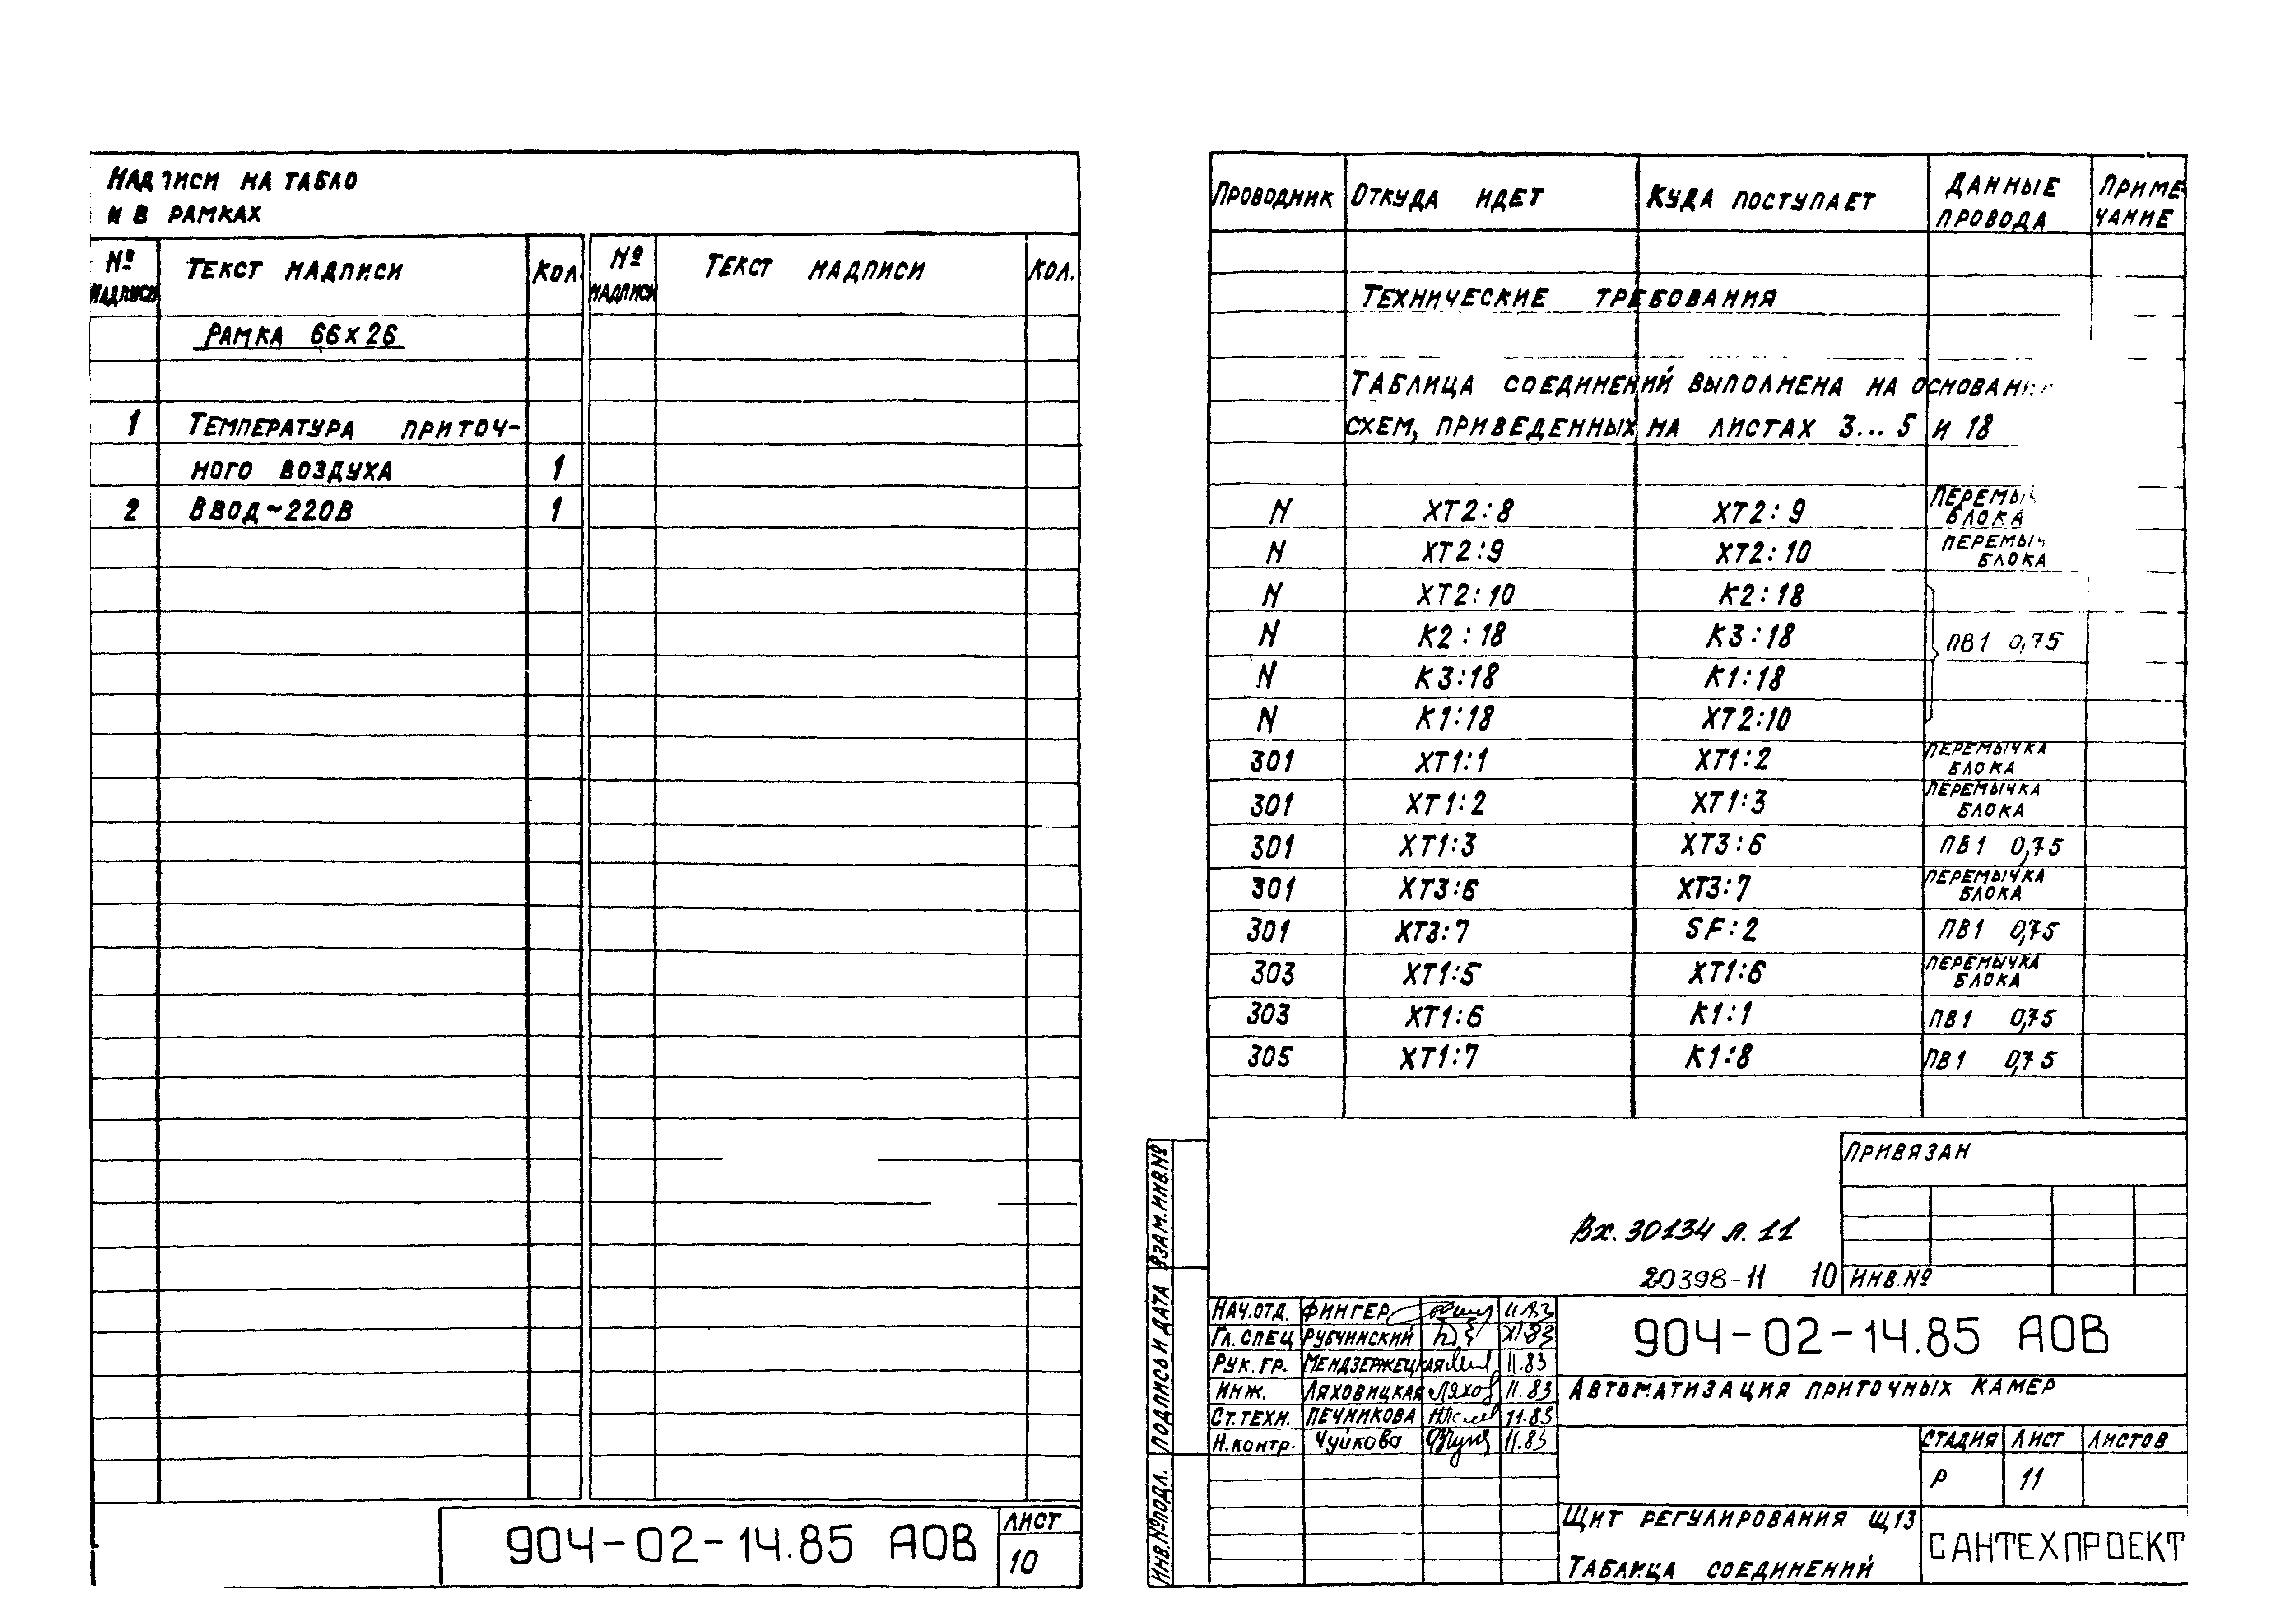 Надписи на табло
и в рамках
№ надписи Текст надписи Кол. № надписи Текст надписи Кол.
Рамка 66х26
1 Температура приточ-
ного воздуха 1
2 Ввод ~220В 1
904-02-14.85 АОВ
Лист
10
Проводник Откуда идет Куда поступает Данные провода Примечание
Технические требования
Таблица соединений выполнена на основан
схем, приведенных на листах 3...5 и 18
N ХТ2:8 ХТ2:9 Перемыч блока
N ХТ2:9 ХТ2:10 Перемыч блока
N ХТ2:10 К2:18
N К2:18 К3:18 ПВ1 0,75
N К3:18 К1:18
N К1:18 ХТ2:10
301 ХТ1:1 ХТ1:2 Перемычка блока
301 ХТ1:2 ХТ1:3 Перемычка блока
301 ХТ1:3 ХТ3:6 ПВ1 0,75
301 ХТ3:6 ХТ3:7 Перемычка блока
301 ХТ3:7 SF:2 ПВ1 0,75
303 ХТ1:5 ХТ1:6 Перемычка блока
303 ХТ1:6 К1:1 ПВ1 0,75
305 ХТ1:7 К1:8 ПВ1 0,75
Привязан
Вх. 30134 л. 11
20398-11 10
Инв.№
Взам.инв.№
Подпись и дата
Инв.№подл.
Нач.отд. Фингер 11.83
Гл. спец Рубчинский XI.83
Рук. гр. Мендзержецкая 11.83
Инж. Ляховицкая Ляхов 11.83
Ст. техн. Печникова 11.83
Н.контр. Чуйкова 11.83
904-02-14.85 АОВ
Автоматизация приточных камер
Стадия Лист Листов
Р 11
Щит регулирования Щ13
Таблица соединений
САНТЕХПРОЕКТ